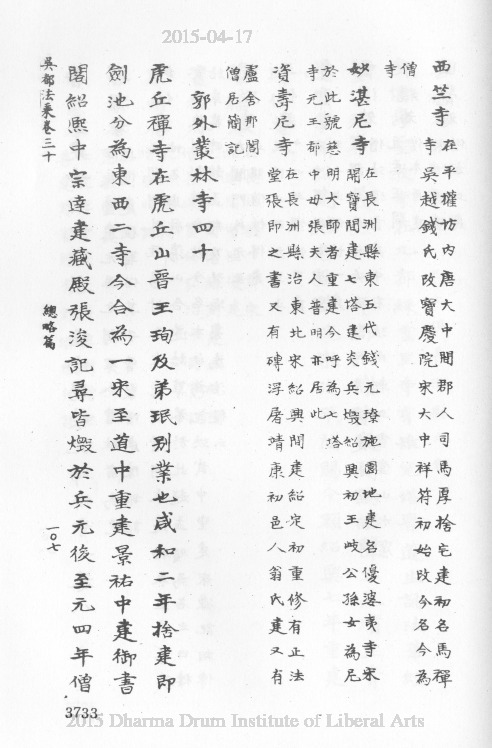 2015-04-17
西竺寺在平權坊內唐大中間郡人司馬厚捨宅建初名馬禪
寺吳越錢氏改寶慶院宋大中祥符初始改今名今為
僧寺
妙湛尼寺在長洲縣東五代錢元璙施園地建名優婆夷寺宋
開寶間建七塔建炎兵燬紹興初王岐公孫女為尼
於此號慈明大師者重建今呼為七塔
寺元王都中母張夫人普明亦居此
資壽尼寺在長洲縣治東北宋紹興間建紹定初重修有正法
堂張即之書又有磚浮屠靖康初邑人翁氏建又有
盧舍那閣
僧居簡記
郭外叢林寺四十
虎丘禪寺在虎丘山晉王珣及弟珉別業也咸和二年捨建即
劍池分為東西二寺今合為一宋至道中重建景祐中建御書
閣紹熙中宗達建藏殿張浚記尋皆燬於兵元後至元四年僧
吳都法乘卷三十 總略篇 一〇七
3733
2015 Dharma Drum Institute of Liberal Arts